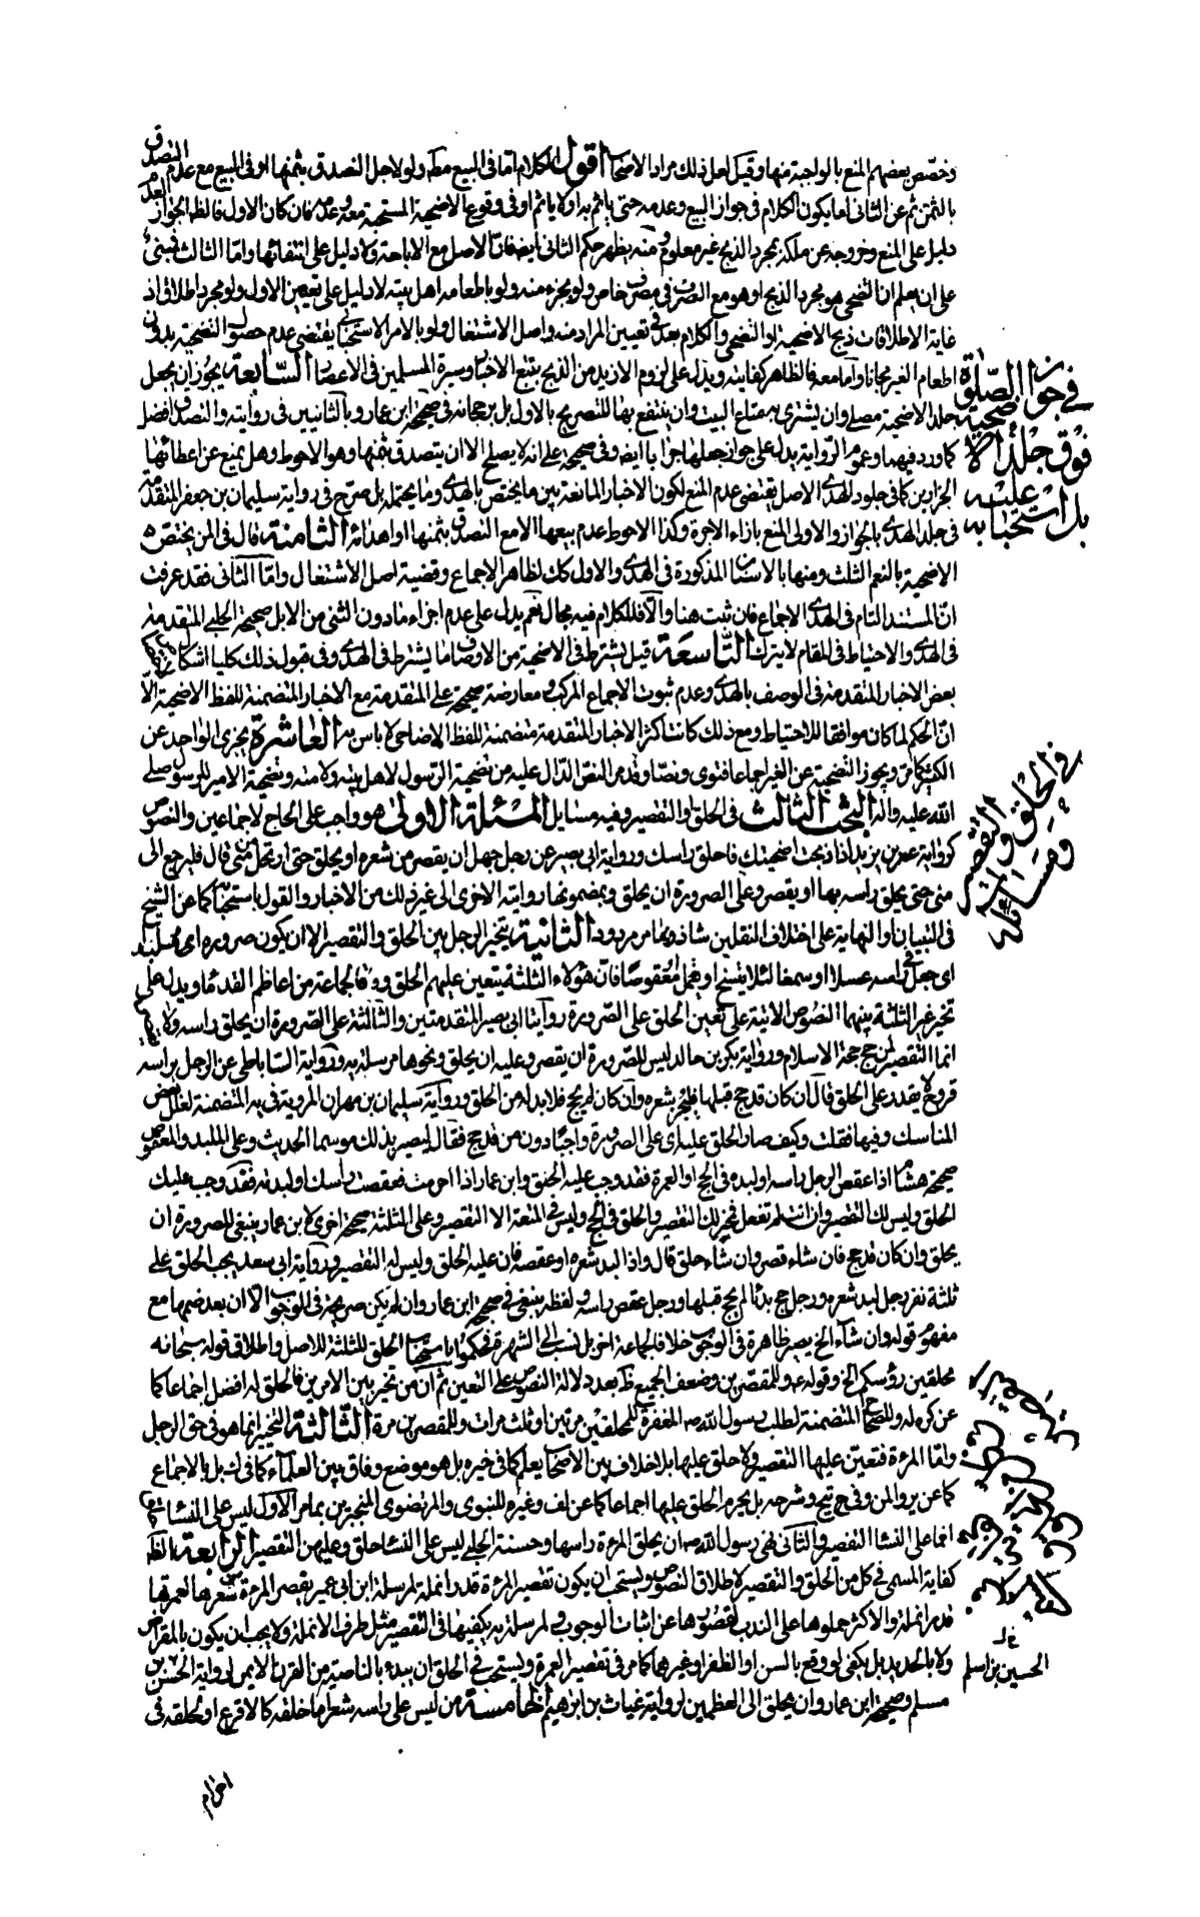 وخصّص بعضهم المنع بالواجبة منها وقيل لعل ذلك مراد الاصحاب اقول الكلام امّا فى البيع مطلقا ولو لاجل التصدق بثمنها او فى البيع مع عدم التصدق
بالثمن ثم عن الثانى اما يكون الكلام فى جواز البيع وعدمه حتى ياثم به او لا ياثم او فى وقوع الاضحية المستحبة معه وعدمه فان كان الاول فالظاهر الجواز لعدم
دليل على المنع وخروجه عن ملكه بمجرد الذبح غير معلوم ومنه يظهر حكم الثانى ايضا فانّ الاصل مع الاباحة ولا دليل على انتفائها وامّا الثالث فيبنى
على ان يعلم ان التضحى هو مجرد الذبح او هو مع الصرف فى مصرف خاص ولو بجزء منه ولو باطعامه اهل بيته لا دليل على تعيين الاول ولو مجرد اطلاق اذ
غاية الاطلاقات ذبح الاضحية او التضحى والكلام بعد فى تعيين المراد منه واصل الاشتغال ولو بالامر الاستحبابى يقتضى عدم حصول التضحية بدون
اطعام الغير مجانا وامّا معه فالظاهر كفايته ويدل على لزوم الازيد من الذبح تتبع الاخبار وسيرة المسلمين فى الاعصار السّابعة يجوز ان يجعل
جلد الاضحية مصلى وان يشترى به متاع البيت وان ينتفع بها للتصريح بالاول بل برجحانه فى صحيحة ابن عمار وبالثانيين فى روايته والتصدق افضل
كما ورد فيهما وعموم الرّواية يدل على جواز جعلها جرابا ايضا وفى صحيحة على انه لا يصلح الا ان يتصدق بثمنها وهو الاحوط وهل يمنع عن اعطائها
الجزارين كما فى جلود الهدى الاصل يقتضى عدم المنع لكون الاخبار المانعة بين ما يختص بالهدى وما يحتمله بل صرّح فى رواية سليمان بن جعفر المتقدمة
فى جلد الهدى بالجواز والاولى المنع بازاء الاجرة وكذا الاحوط عدم بيعها الا مع التصدق بثمنها او اهدائه الثامنة قال فى المن يختص
الاضحية بالنعم الثلث ومنها بالاسنان المذكورة فى الهدى والاول كك لظاهر الاجماع وقضية اصل الاشتغال وامّا الثانى فقد عرفت
انّ المستند التام فى الهدى الاجماع فان ثبت هنا والّا فللكلام فيه مجال نعم يدل على عدم اجزاء مادون الثنى من الابل صحيحة الحلبى المتقدمة
فى الهدى والاحتياط فى المقام لا يترك التّاسعة قيل يشترط فى الاضحية من الاوصاف ما يشترط فى الهدى وفى قبول ذلك كليا اشكال
بعض الاخبار المتقدمة فى الوصف بالهدى وعدم ثبوت الاجماع المركب ومعارضة صحيحة على المتقدمة مع الاخبار المتضمنة للفظ الاضحية الّا
انّ الحكم لما كان موافقا للاحتياط ومع ذلك كانت اكثر الاخبار المتقدمة متضمنة للفظ الاضاحى لا باس به العاشرة يجزى الواحد عن
الكثير كما مرّ ويجوز التضحية عن الغير اجماعا فتوى ونصّا وقد مر النصّ الدّال عليه من تضحية الرّسول لاهل بيته ولامته وتضحية الامير للرسول صلى
الله عليه واله البحث الثالث فى الحلق والتقصير وفيه مسايل المسئلة الاولى هو واجب على الحاج لاجماعين والنصوص
كرواية عمر بن يزيد اذا ذبحت اضحيتك فاحلق راسك ورواية ابى بصير عن رجل جهل ان يقصر من شعره او يحلق حتى ارتحل من منى قال فليرجع الى
منى حتى يحلق راسه بها او يقصر وعلى الصرورة ان يحلق وبمضمونها روايته الاخرى الى غير ذلك من الاخبار والقول باستحبابه كما عن الشيخ
فى التبيان او النهاية على اختلاف النقلين شاذ وبما مر مردود الثانية يتخير الرجل بين الحلق والتقصير الا ان يكون صرورة او ملبد
اى جعل فى راسه عسلا او صمغا لئلا يتسخ او يقمل او معقوصا فان هؤلاء الثلثة يتعين عليهم الحلق وفاقا لجماعة من اعاظم القدماء ويدل على
تخير غير الثلثة بينهما النصوص الاتية وعلى تعين الحلق على الصّرورة روايتا ابى بصير المتقدمتين والثالثة على الصّرورة ان يحلق راسه ولا يقصر
انما التقصير لمن حج حجة الاسلام ورواية بكر بن خالد ليس للصّرورة ان يقصر وعليه ان يحلق ونحوها مرسلة يه ورواية السّاباطى عن الرجل براسه
قروح لا يقدر على الحلق قال ان كان قد حج قبلها فليجز شعره وان كان لم يحج فلا بدله من الحلق ورواية سليمان بن مهران المروية فى يه المتضمنة لعلل بعض
المناسك وفيها فقلت وكيف صار الحلق عليه اى على الصرورة واجبا دون من قد حج فقال ليصير بذلك موسما الحديث وعلى الملبد والمعقوص
صحيحة هشام اذا عقص الرجل راسه او لبده فى الحج او العمرة فقد وجب عليه الحلق وابن عمار اذا احرمت فعقصت راسك او لبدته فقد وجب عليك
الحلق وليس لك التقصير وان انت لم تفعل فمخير لك التقصير والحلق فى الحج وليس فى المتعة الا التقصير وعلى الثلثة صحيحة اخرى لابن عمار ينبغى للصرورة ان
يحلق وان كان قد حج فان شاء قصر وان شاء حلق قال واذا لبد شعره او عقصه فان عليه الحلق وليس له التقصير ورواية ابى سعد يجب الحلق على
ثلثة نفر رجل لبد شعره ورجل حج بدئا لم يحج قبلها ورجل عقص راسه ولفظ ينبغى فى صحيحة ابن عمار وان لم يكن صريحة فى الوجوب الا ان بعد ضمها مع
مفهوم قوله وان شاء الخ يصير ظاهرة فى الوجوب خلافا لجماعة اخر بل نسب الى الشهرة فحكموا باستحباب الحلق للثلثة للاصل واطلاق قوله سبحانه
محلقين رؤسكم الخ وقوله عه والمقصرين وضعف الجميع ظ بعد دلالة النصوص على التعين ثم ان من تخير بين الامرين فالحلق له افضل اجماعا كما
عن كره له وللصحاح المتضمنة لطلب رسول الله ص المغفرة للمحلقين مرتين او ثلث مرات وللمقصرين مرة الثالثة التخيير انما هو فى حق الرجل
وامّا المرءة فتعين عليها التقصير ولا حلق عليها بلا خلاف بين الاصحاب يعلم كما فى خيره بل هو موضع وفاق بين العلماء كما فى ك بل بالاجماع
كما عن ير والمن وفى ح يج وشرحه بل يحرم الحلق عليها اجماعا كما عن لف وغيره للنبوى والمرتضوى المنجبرين بما مر الاول ليس على النساء
انما على النساء التقصير والثانى نهى رسول الله ص ان يحلق المرءة راسها وحسنة الحلبى ليس على النساء حلق وعليهن التقصير الرابعة الظ
كفاية المسمى فى كل من الحلق والتقصير لاطلاق النصوص ويستحب ان يكون تقصير المرءة قدر انملة لمرسلة ابن ابى عمير يقصر المرءة من شعرها لعمرتها
قدر انملة والاكثر حملوها على الندب لقصورها عن اثبات الوجوب ولمرسلة يه يكفيها فى التقصير مثل طرف الانملة ولا يجب ان يكون بالمقراض
ولا بالحديد بل يكفى لو وقع بالسن او الظفر او غيرهما كما مر فى تقصير العمرة ويستحب فى الحلق ان يبدء بالناصية من القرن الايمن لرواية الحسن بن
مسلم وصحيحة ابن عمار وان يحلق الى العظمين لرواية غياث بن ابرهيم الخامسة من ليس على راسه شعر اما خلقه كالاقرع او لحلقه فى
فى جواز الصّلوة
فوق جلد الاضحية
بل استحبابه عليه
فى الحلق والتقصير
وفيه مسائل
الحسين بن اسلم
احرام